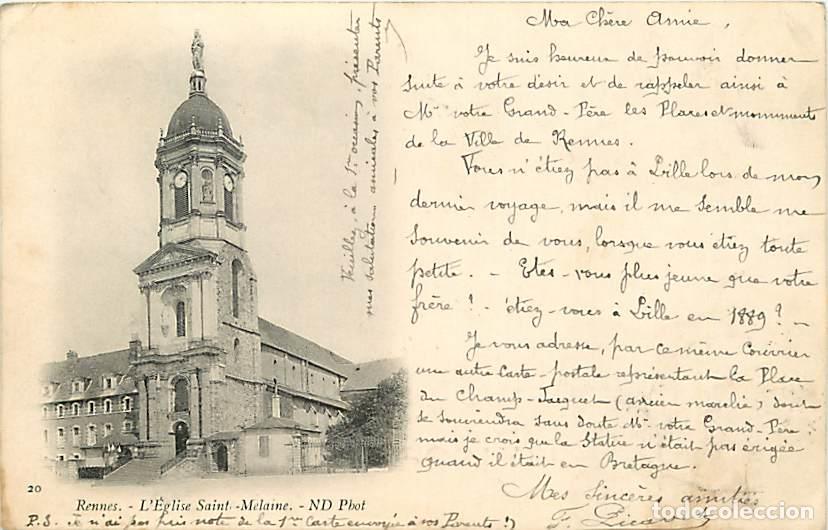 Ma Chère Amie,
Je suis heureux de pouvoir donner
suite à votre désir et de rappeler ainsi à
Mr votre Grand-Père les Places et monuments
de la Ville de Rennes.
Vous n'étiez pas à Lille lors de mon
dernier voyage, mais il me semble me
souvenir de vous, lorsque vous étiez toute
petite. - Etes-vous plus jeune que votre
frère ! - étiez-vous à Lille en 1889 ? -
Je vous adresse, par ce même Courrier
une autre carte-postale représentant la Place
du Champ-Jacquet (ancien marché) dont
se souviendra sans doute Mr votre Grand-Père
mais je crois que la Statue n'était pas érigée
quand il était en Bretagne.
Mes sincères amitiés
F.
Veuillez, à la 1re occasion, présenter
mes salutations amicales à vos Parents
20
Rennes. - L'Église Saint-Melaine. - ND Phot
P.S. Je n'ai pas pris note de la 1re Carte envoyée à vos Parents !)
todocoleccion.net